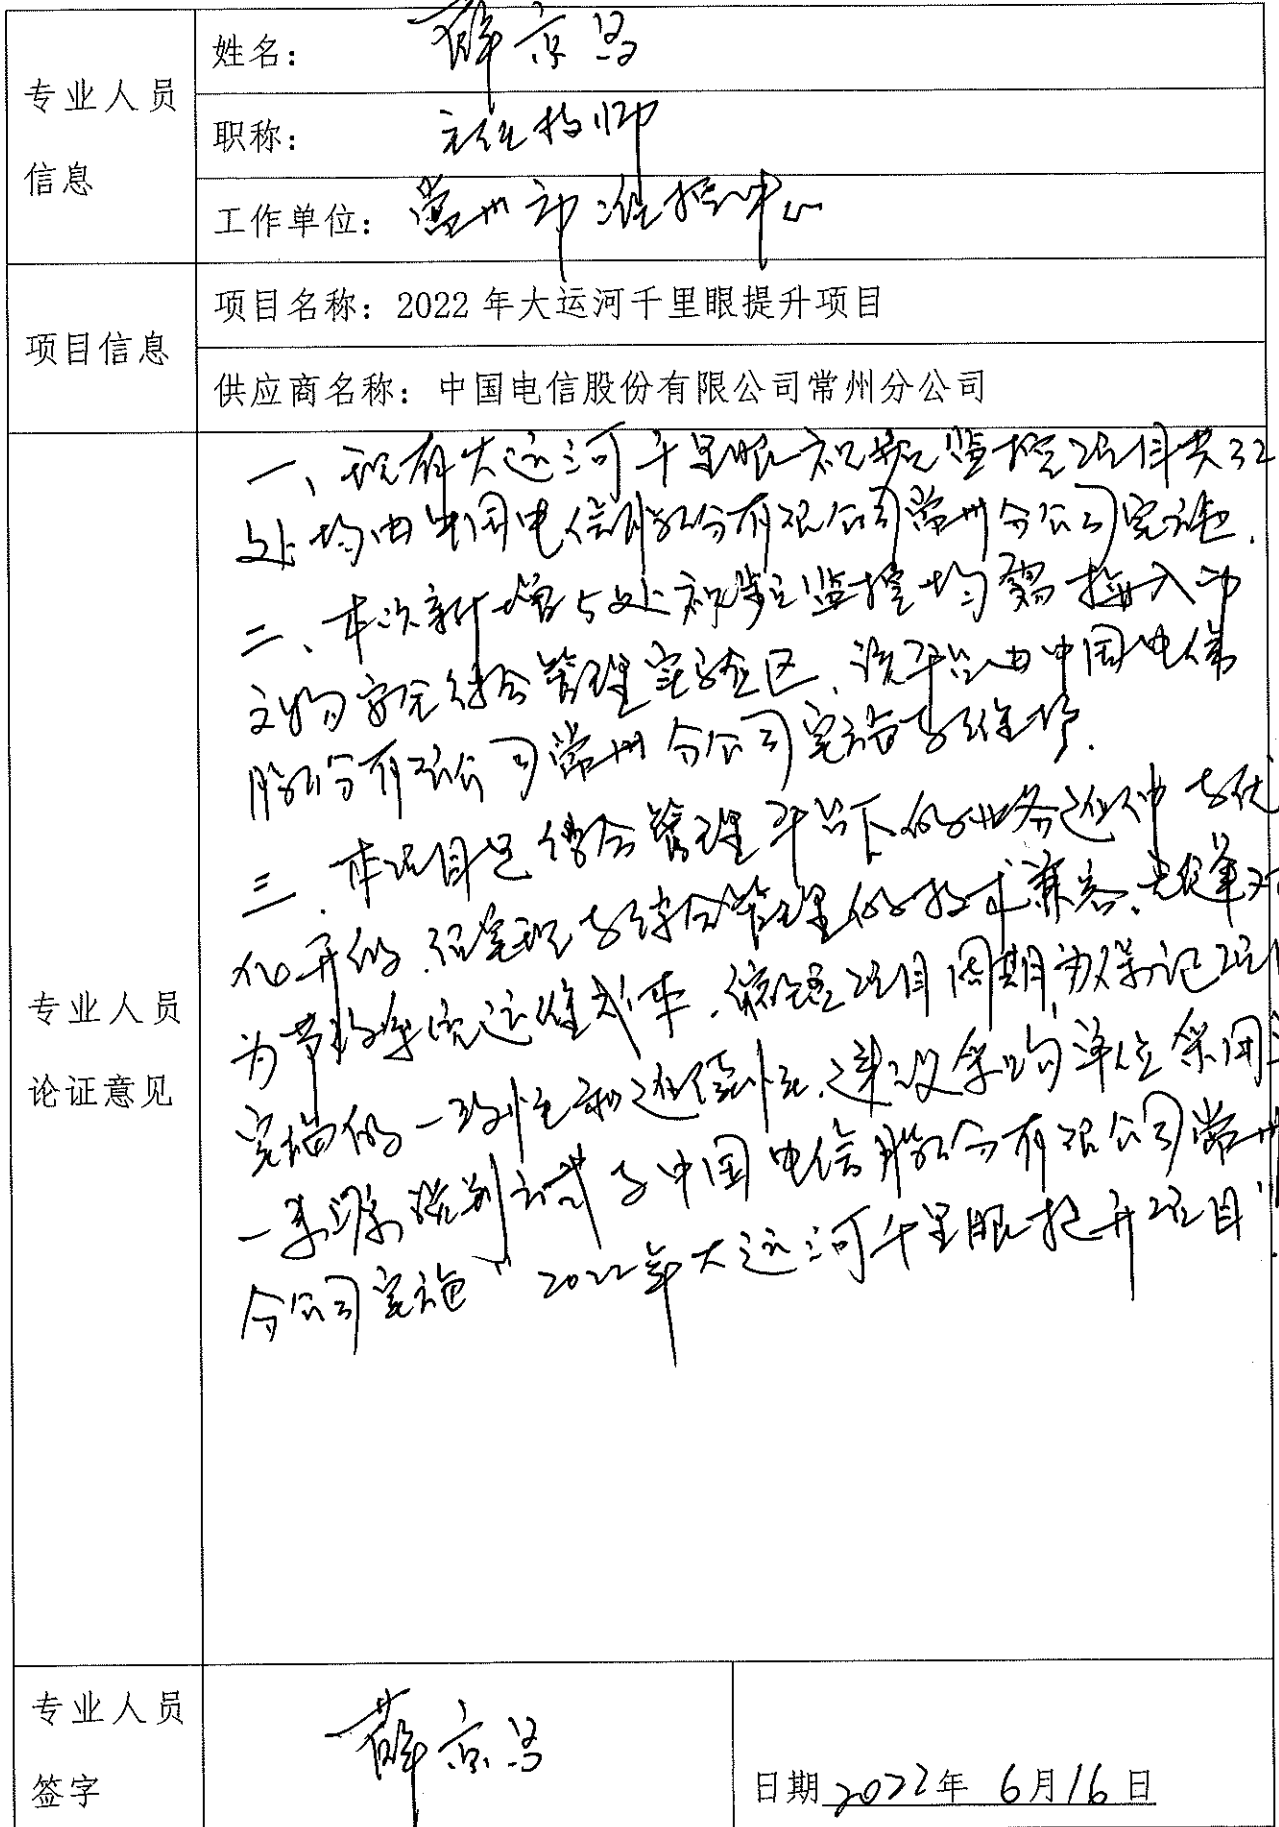 专业人员
信息
姓名：薛京昌
职称：主任技师
工作单位：常州市 中心
项目信息
项目名称：2022 年大运河千里眼提升项目
供应商名称：中国电信股份有限公司常州分公司
专业人员
论证意见
一、现有大运河千里眼视频监控项目共32
处均由中国电信股份有限公司常州分公司实施.
二、本次新增5处视频监控均需接入市
文物安全综合管理实验区、该平台由中国电信
股份有限公司常州分公司实施与维护.
三、本项目是综合管理平台下的业务延伸与优
化升级.须实现与综合管理的技术兼容、无缝对
为节约系统运维成本.缩短项目周期,为保证项目
实施的一致性和延续性.建议采购单位采用
一来源谈判方式与中国电信股份有限公司常州
分公司实施"2022年大运河千里眼提升项目"
专业人员
签字
薛京昌
日期 2022年 6月16日